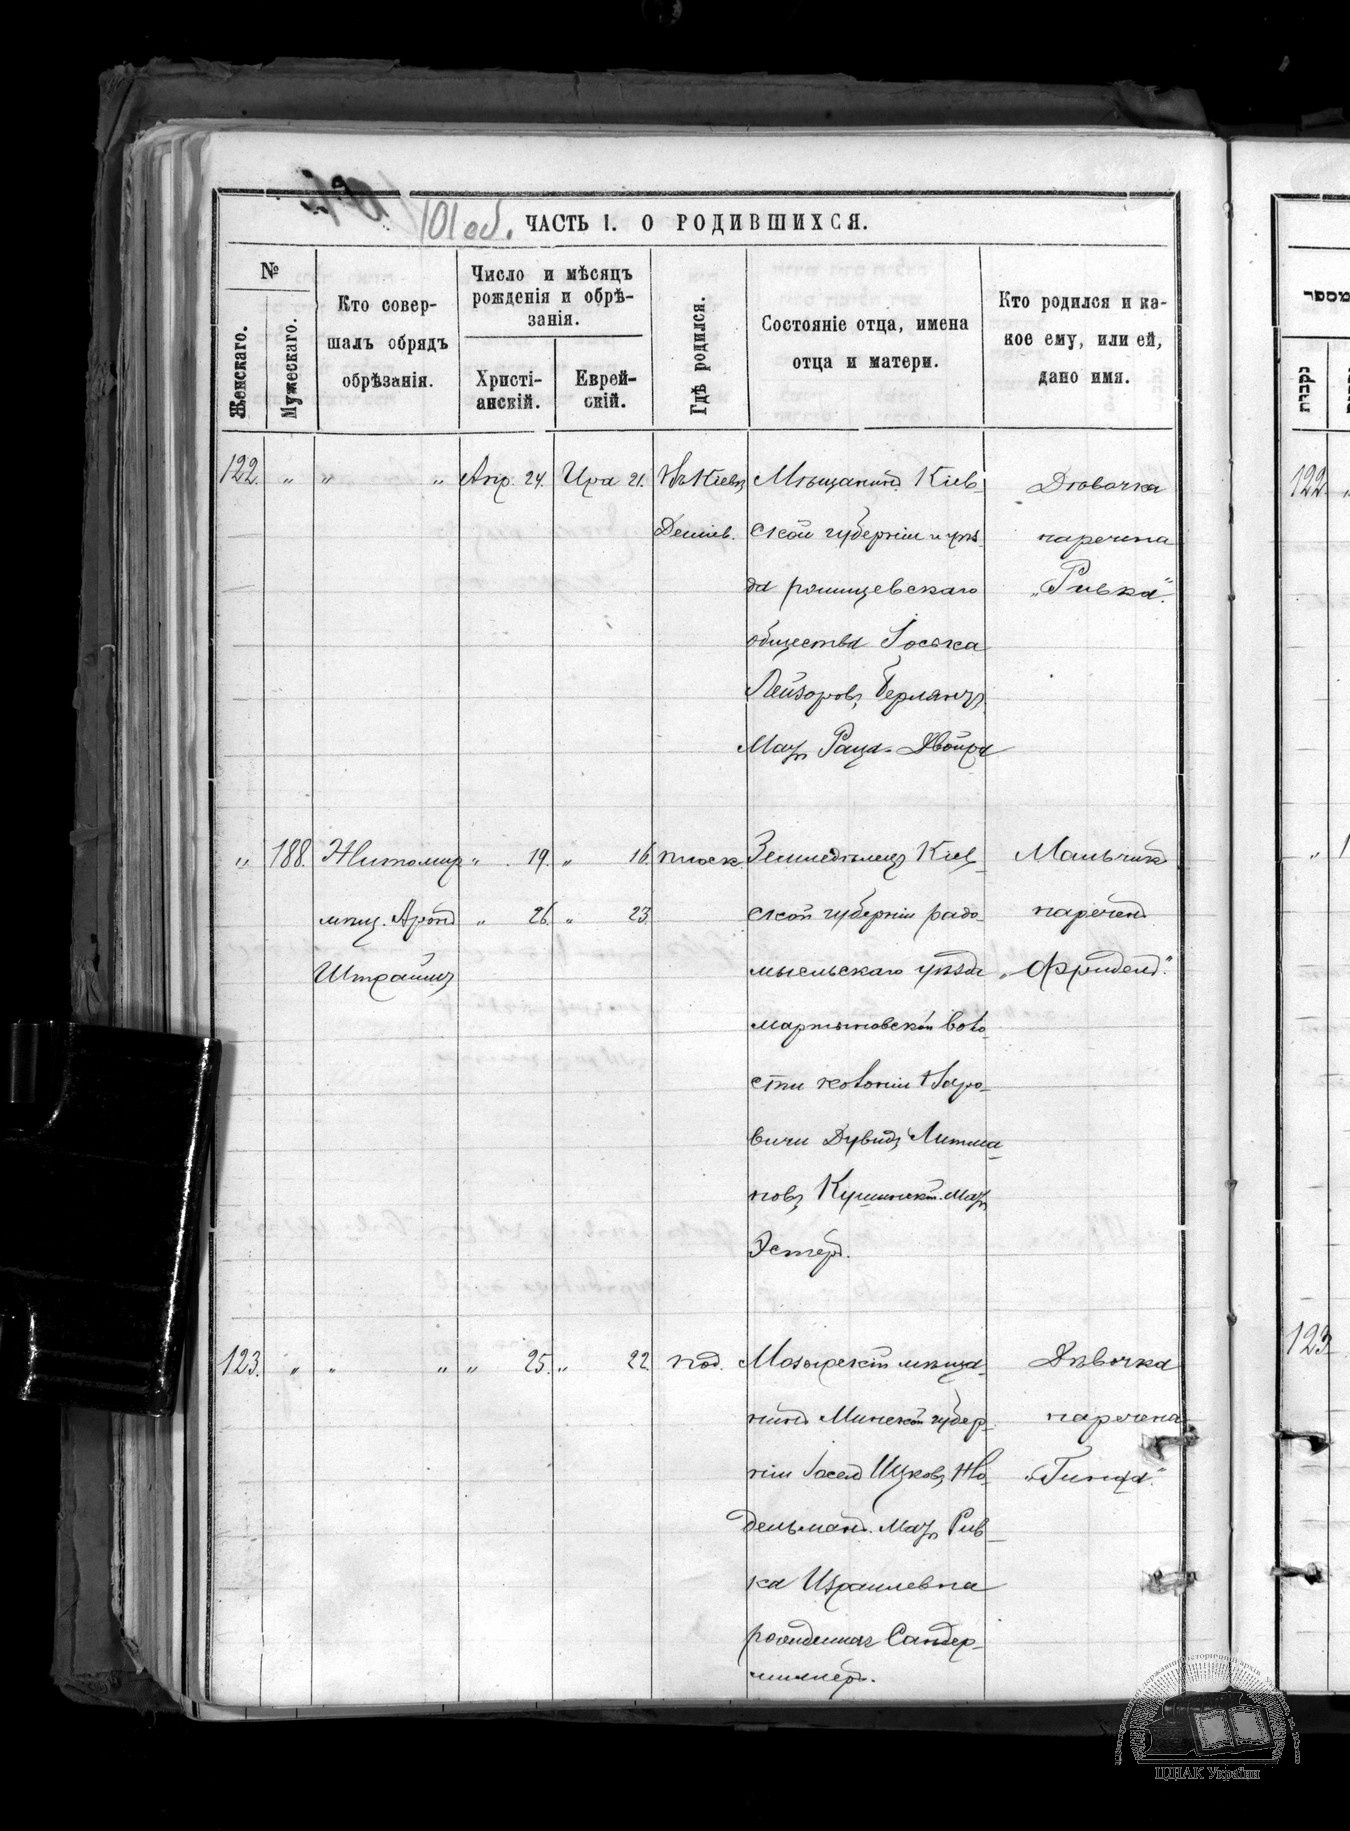 101 об.
ЧАСТЬ I. О РОДИВШИХСЯ.
№
Женскаго.
Мужескаго.
Кто совер-
шалъ обрядъ
обрѣзанія.
Число и мѣсяцъ
рожденія и обрѣ-
занія.
Христі-
анскій.
Еврей-
скій.
Гдѣ родился.
Состояніе отца, имена
отца и матери.
Кто родился и ка-
кое ему, или ей,
дано имя.
122. „ „ „ Апр. 24. Ира 21. Въ Кіевѣ
Деміев.
Мѣщанинъ Кіев-
ской губерніи и уѣз-
да
общества Іоська
Лейзоровъ Берлянтъ
Мать Двойра
Дѣвочка
наречена
„Ривка“.
„ 188. Житомир. „ 19. „ 16. Плоск.
мѣщ. Аронъ „ 26. „ 23.
Земледѣлецъ Кіев-
ской губерніи радо-
мысльскаго уѣзда
мартыновской воло-
сти колоніи
вичи Дувидъ Литма-
новъ Мать
Эстеръ.
Мальчикъ
нареченъ
123. „ „ „ „ 25. „ 22. Под.
Мозырскій мѣща-
нинъ Минской губер-
ніи Іосель Ицковъ
дельманъ. Мать Рив-
ка Израилевна
рожденная Сандер-
Дѣвочка
наречена
מספר
נקבות
122
„ 1
123
ЦДІАК України